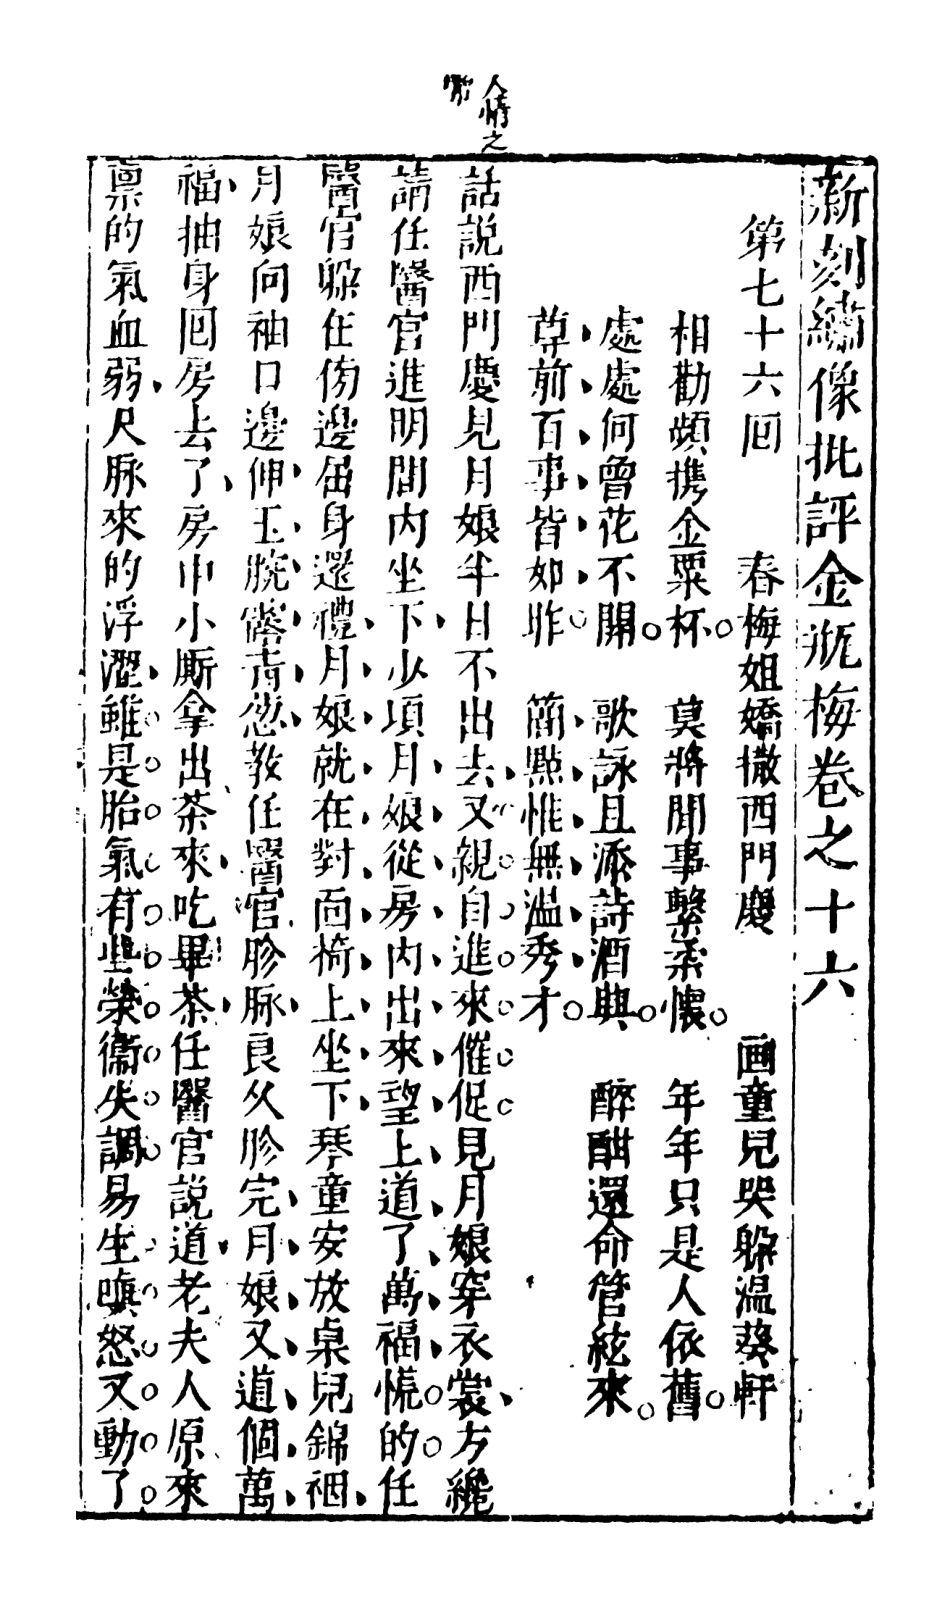 新刻繡像批評金瓶梅卷之十六
第七十六回　春梅姐嬌撒西門慶　画童兒哭躲温葵軒
相勸頻携金粟杯　莫將閒事繫柔懷　年年只是人依舊
處處何曾花不開　歌詠且添詩酒興　醉酣還命管絃來
尊前百事皆如昨　簡點惟無温秀才
話説西門慶見月娘半日不出去又親自進來催促見月娘穿衣裳方纔
請任醫官進明間内坐下少頃月娘從房内出來望上道了萬福慌的任
醫官躲在傍邊屈身還禮月娘就在對面椅上坐下琴童安放桌兒錦裀
月娘向袖口邊伸玉腕露青葱教任醫官胗脉良久胗完月娘又道個萬
福抽身回房去了房中小厮拿出茶來吃畢茶任醫官説道老夫人原來
禀的氣血弱尺脉來的浮澀雖是胎氣有些榮衞失調易生嗔怒又動了
人情之